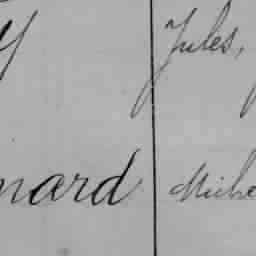 y Jules,
nard Miche